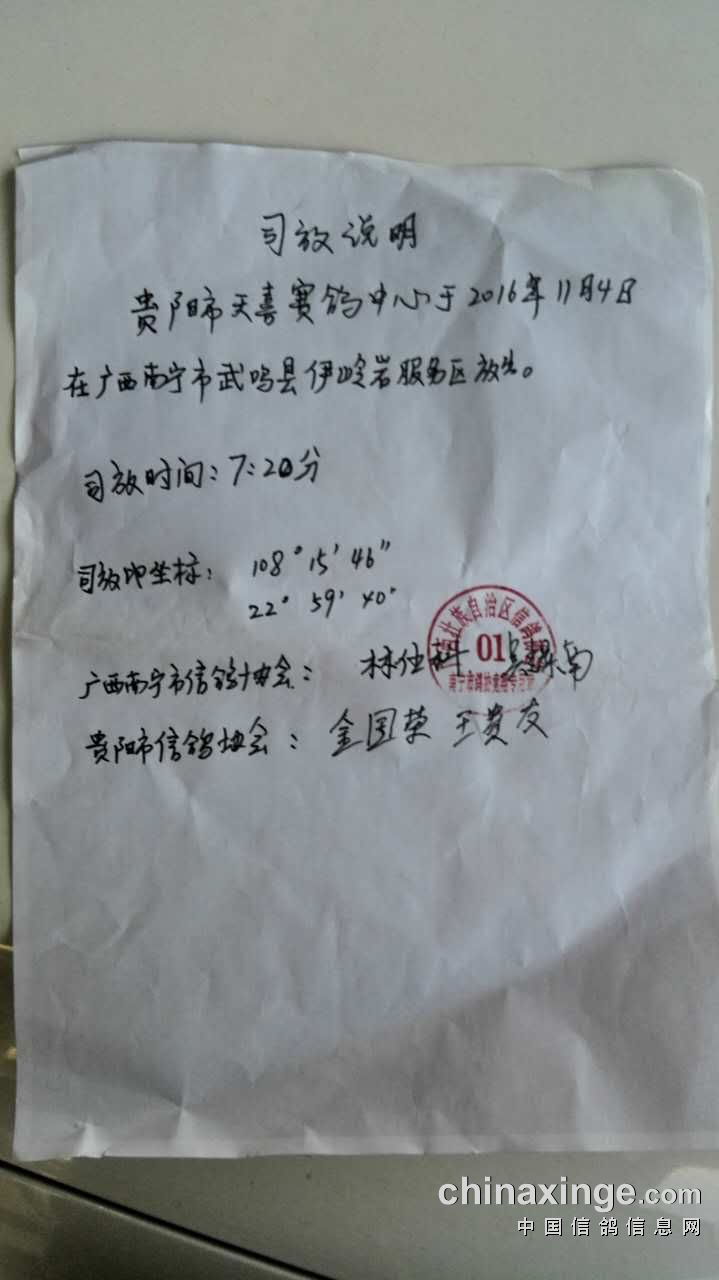 司放说明
贵阳市天喜赛鸽中心于2016年11月4日
在广西南宁市武鸣县伊岭岩服务区放出。
司放时间:7:20分
司放地坐标: 108°15′46″
22°59′40″
广西南宁市信鸽协会: 林仕科
壮族自治区信鸽
01
南宁市鸽协竞翔专用章
贵阳市信鸽协会: 金国荣 王贵友
chinaxinge.com
中国信鸽信息网